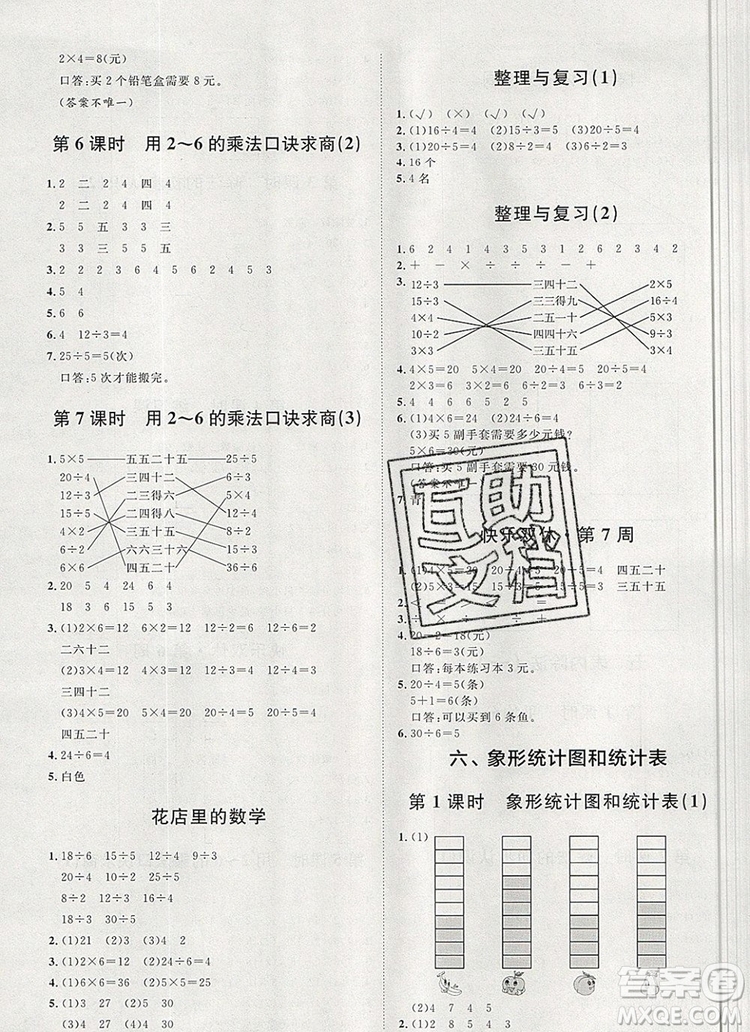 2×4=8(元)
口答:买 2 个铅笔盒需要 8 元。
(答案不唯一)
第 6 课时 用 2～6 的乘法口诀求商(2)
1. 2 二 二 4 四 4
2 二 二 4 四 四
2. 5 5 五 3 3 三
3 3 三 5 5 五
3. 2 2 2 2 2 3 2 3 6
4. 5 4
5. 6 5
6. 4 12÷3=4
7. 25÷5=5(次)
口答:5 次才能搬完。
第 7 课时 用 2～6 的乘法口诀求商(3)
1. 5×5 五五二十五 25÷5
20÷4 三四十二 4×5
12÷3 二三得六 15÷3
2×3 二四得八 3×4
4×2 三五十五 8÷2
6÷2 六六三十六 36÷6
6×6 四五二十 6÷2
2. 20 5 4
18 3 6 15 5 3
3. (1)2×6=12 6×2=12 12÷2=6
二六十二
(2)3×4=12 4×3=12 12÷3=4
三四十二
(3)4×5=20 5×4=20 20÷4=5
四五二十
4. 24÷6=4
5. 白色
花店里的数学
1. 18÷6 15÷5 12÷4 9÷3
20÷5 24÷6 12÷3
8÷2 12÷3 16÷4
30÷6 25÷5
18÷3 30÷5
2. (1)21 (2)3 (3)4
3. 24÷6=4
4. (1)3×6=18 (2)5×5=25
5. (1)5 30 (2)5 30
整理与复习(1)
1. (√) (×) (√) (√)
2. (1)16÷4=4 (2)15÷3=5
3. (1)20÷5=4 (2)18÷6=3
4. 16 个
5. 4 名
整理与复习(2)
1. 6 2 4 1 4 3 5 2 6 2 3 4 2
2. + − × ÷ ÷ ÷ − ÷
3. 12÷3 三四十二 2×5
15÷3 三三得九 16÷4
4×4 二五一十 3×5
10÷2 四四十六 9÷3
3×3 三五十五 3×4
6. (1)4×6=24 (2)24÷4=6
(3)买 5 副手套需要多少元钱?
5×6=30(元)
口答:买 5 副手套需要 30 元钱。
7. 青
互助
文档
第 7 周
三五十五
3. 20−2=18(元)
18÷6=3(元)
口答:每本练习本 3 元。
5. 20÷4=5(条)
5+1=6(条)
口答:可以买到 6 条鱼。
6. 30÷6=5
六、象形统计图和统计表
第 1 课时 象形统计图和统计表(1)
1. (1)
(2)4 7 4 5
答案圈
MXQE.COM